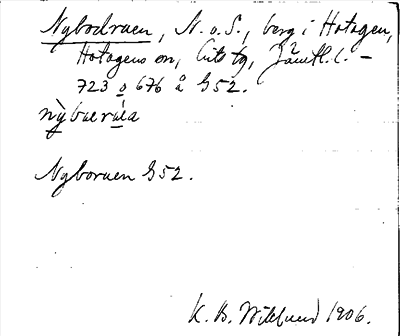 Nybodraen, N. o. S., berg i Hotagen,
Hotagens sn, Lits tg, Jämtl. l. –
723 o 676 å G52.
nỳbverúa
Nyboraen G52.
K. B. Wiklund 1906.